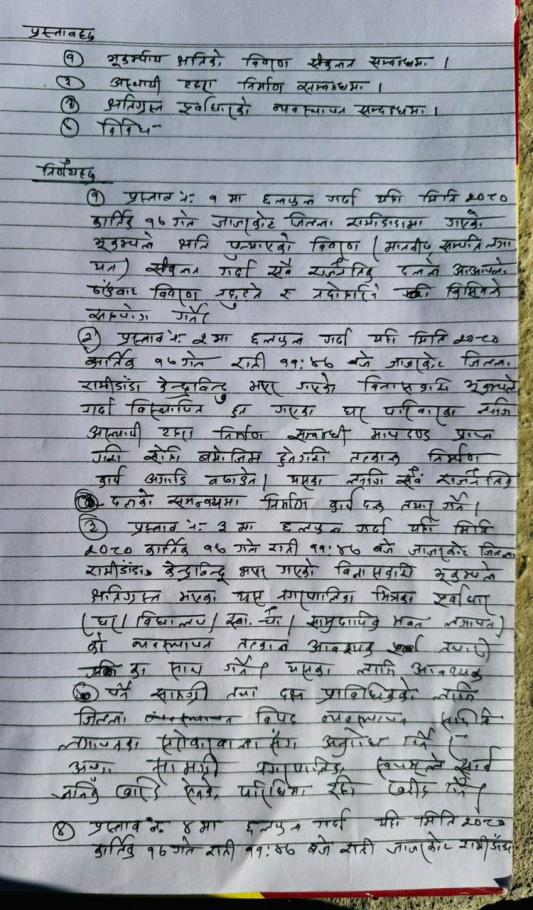 प्रस्तावहरु
१ भूकम्पीय क्षतिको विवरण संकलन सम्बन्धमा ।
२ अस्थायी टहरा निर्माण सम्बन्धमा ।
३ क्षतिग्रस्त पूर्वाधारको व्यवस्थापन सम्बन्धमा ।
४ विविध -
निर्णयहरु
१ प्रस्ताव नं. १ मा छलफल गर्दा यही मिति २०८०
कार्तिक १७ गते जाजरकोट जिल्ला रामीडाडामा गएको
भूकम्पले क्षति पुर्‍याएको विवरण (मानवीय सम्पत्ति लगा
यत) संकलन गर्दा सबै राजनैतिक दलले आआफ्नो
विवरण र
सहयोग गर्ने
२ प्रस्ताव नं. २ मा छलफल गर्दा यही मिति २०८०
कार्तिक १७ गते राती ११:४७ बजे जाजरकोट जिल्ला
रामीडांडा केन्द्रविन्दु भएर गएको विनासकारी भूकम्पले
गर्दा विस्थापित हुन गएका घर परिवारका लागि
अस्थायी टहरा निर्माण सम्बन्धी मापदण्ड प्राप्त
गरी सोहि बमोजिम हुनेगरी तत्काल निर्माण
कार्य अगाडि बढाउने । यसका लागि सबै राजनैतिक
दलको समन्वयमा निर्माण कार्य दल तयार गर्ने ।
३ प्रस्ताव नं. ३ मा छलफल गर्दा यही मिति
२०८० कार्तिक १७ गते राती ११:४७ बजे जाजरकोट जिल्ला
रामीडांडा केन्द्रविन्दु भएर गएको विनासकारी भूकम्पले
क्षतिग्रस्त भएका यस नगरपालिका भित्रका पूर्वाधार
(घर / विद्यालय / स्वा. चौ / सामुदायिक भवन लगायत)
को व्यवस्थापन तत्काल आवश्यक तयारी
का साथ गर्ने । यसका लागि आवश्यक
पर्ने सामग्री तथा दक्ष प्राविधिकको लागि
जिल्ला विपद व्यवस्थापन समिति
लगायतका सरोकारवाला संग अनुरोध गर्ने ।
अन्य सामाग्री नगरपालिका
परिधिमा रही खरीद गर्ने ।
४ प्रस्ताव नं. ४ मा छलफल गर्दा यही मिति २०८०
कार्तिक १७ गते राती ११:४७ बजे राती जाजरकोट रामीडाँडा